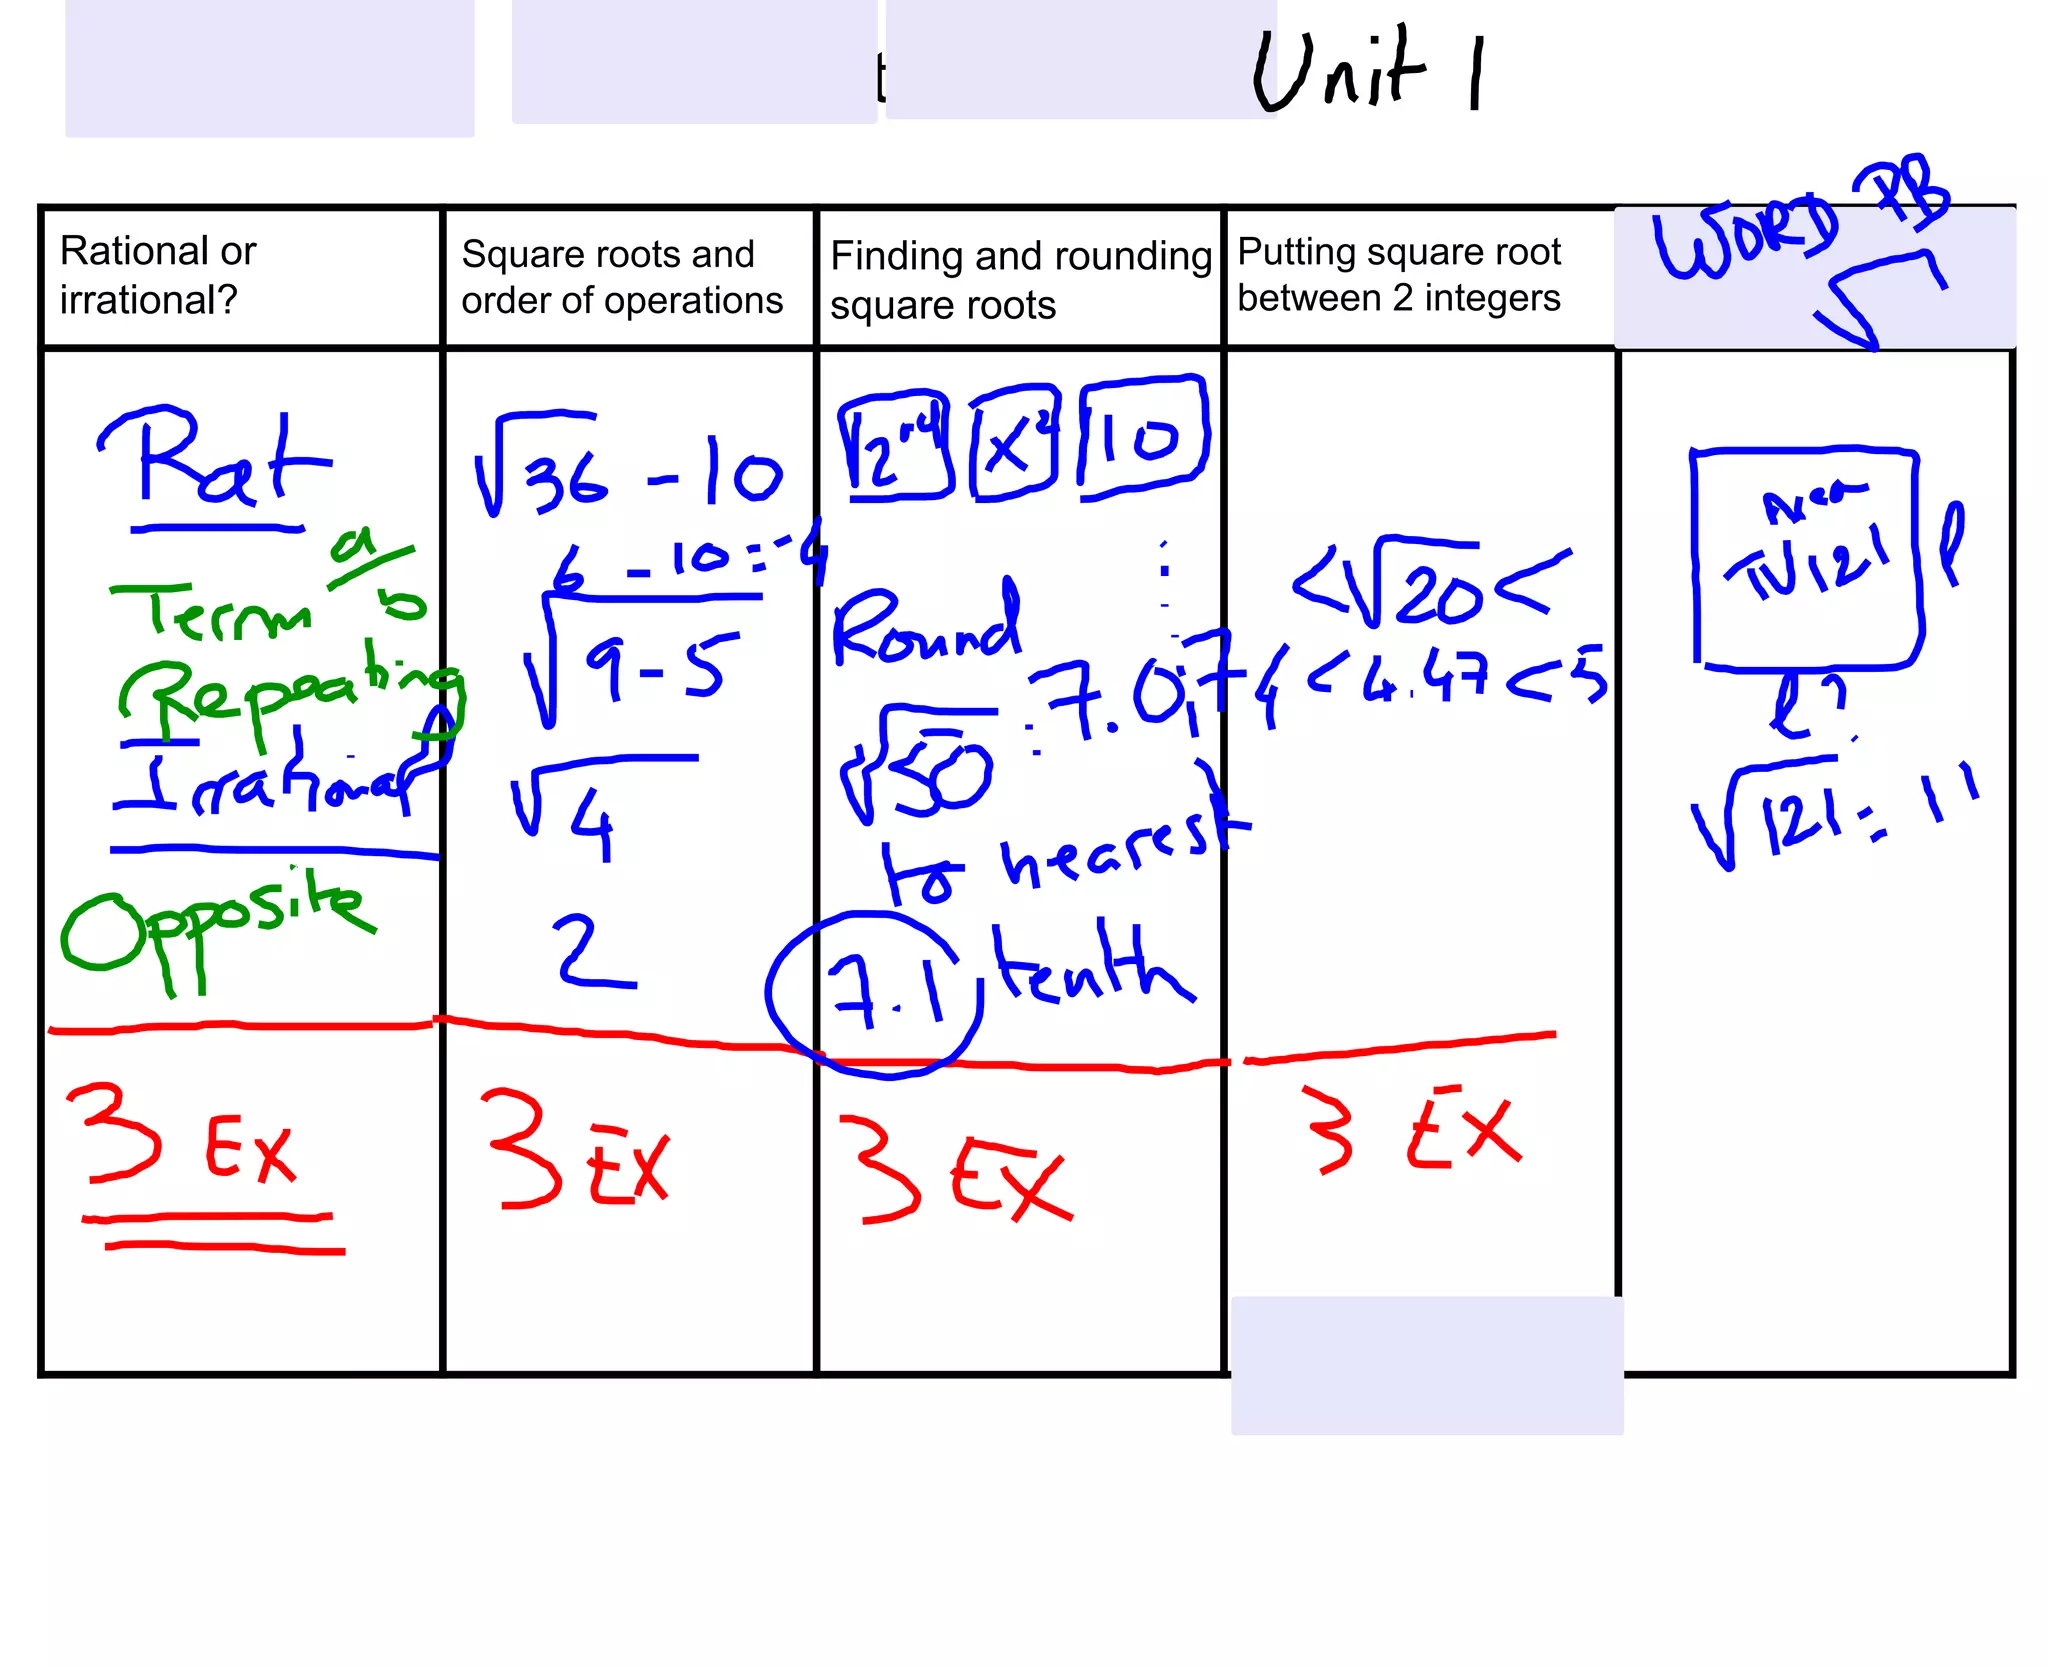 Unit 1
t
WORD PB
√
Rational or
irrational?
Square roots and
order of operations
Finding and rounding
square roots
Putting square root
between 2 integers
Rat
a/b
Term
Repeating
Irrational
Opposite
3 EX
√36 - 10
6 - 10 = -4
√9 - 5
√4
2
3 EX
x² 10
Round
√50 = 7.07
to nearest
tenth
7.1
3 EX
< √20 <
4 < 4.47 < 5
3 EX
121
l?
√121 = 11